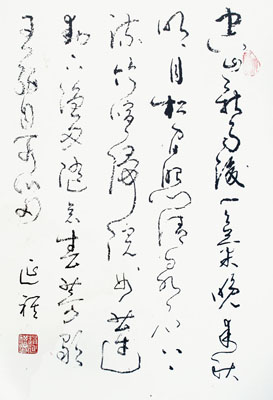 空山新雨後天氣晚來秋
明月松間照清泉石上
流竹喧歸浣女蓮
動下漁舟隨意春芳歇
王孫自可留
延